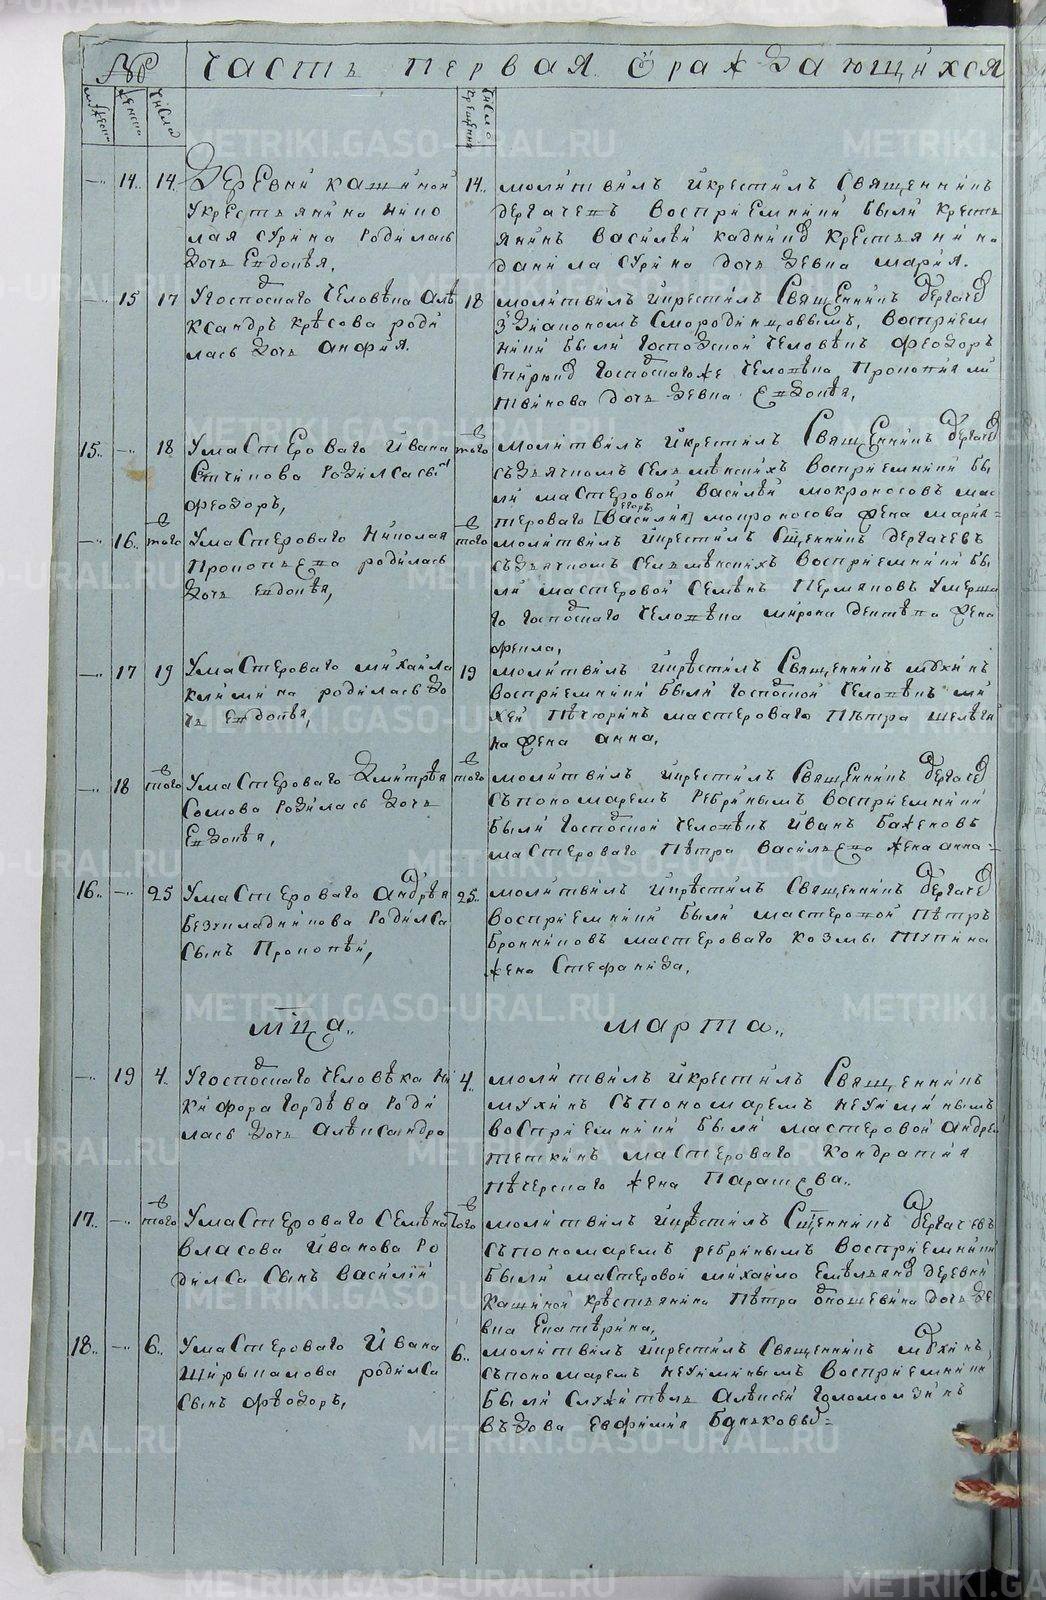 № Часть первая ѡ раждающихся
мужески
женски
число
число крещения
14. 14. Деревни кашиной
укрестьянина нико
лая сурина родилась
дочь Евдокѣя,
14. молитвилъ икрестилъ Священникъ
дергачевъ восприемники были кресть
янинъ василѣй крестьянина
данила сурина дочь девка мария.
15 17 Угосподскаго человѣка алѣ
ксандръ роди
лась дочь анфия.
18 молитвилъ икрестилъ Священникъ дергачев
здиакономъ Смородинцовымъ, восприем
ники были господской человѣкъ феодоръ
господскагоже человѣка прокопия ли
твинова дочь девка Евдокѣя,
15. 18 Умастероваго Ивана
родилса сынъ
феодоръ,
в того молитвилъ икрестилъ Священникъ дергачев
съдьячкомъ восприемники бы
ли мастеровой василѣй мокроносовъ мас
тероваго [василия] егора мокроносова жена мария
16. в того Умастероваго николая
прокопьева родилась
дочь Евдокѣя,
в того молитвилъ икрестилъ Сщенникъ дергачевъ
съдьячкомъ восприемники бы
ли мастеровой семенъ пермяковъ умерша
го господскаго человѣка мирона жена
фекла,
17 19 Умастероваго михаила
климина родилась до
чь Евдокѣя,
19 молитвилъ икрѣстилъ Священникъ мухинъ
восприемники были господской человѣкъ ми
хей мастероваго пѣтра
жена анна.
18 в того Умастероваго Дмитрѣя
Сомова родилась дочь
Евдокѣя,
в того молитвилъ икрестилъ Священникъ дергачев
съпономаремъ ребринымъ восприемники
были господской человѣкъ иванъ баженовъ
мастероваго пѣтра васильева жена анна
16. 25 Умастероваго андрѣя
родилса
сынъ прокопѣй,
25. молитвилъ икрѣстилъ священникъ дергачев
восприемники были мастеровой пѣтръ
бронниковъ мастероваго козмы тупина
жена Стефанида,
мца марта
19 4. Угосподскаго человѣка ни
кифора гордѣва роди
лась дочь алѣксандра
4. молитвилъ икрестилъ Священникъ
мухинъ съпономаремъ неуйминымъ
восприемники были мастеровой андрей
теткинъ мастероваго кондратия
пѣчерскаго жена парасгева.
17. в того Умастероваго семѣна
власова иванова ро
дилса сынъ василий
того молитвилъ икрѣстилъ Сщенникъ дергачевъ
съпономаремъ ребринымъ восприемники
были мастеровой михайло деревни
кашиной крѣстьянина пѣтра дочь де
вка Екатѣрина,
18. 6. Умастероваго Ивана
ширыкалова родилса
сынъ фѣодоръ,
6. молитвилъ икрестилъ Священникъ мухинъ,
съпономаремъ неуйминымъ восприемники
были служитель алѣксѣй голомолзинъ
въдова евфимия